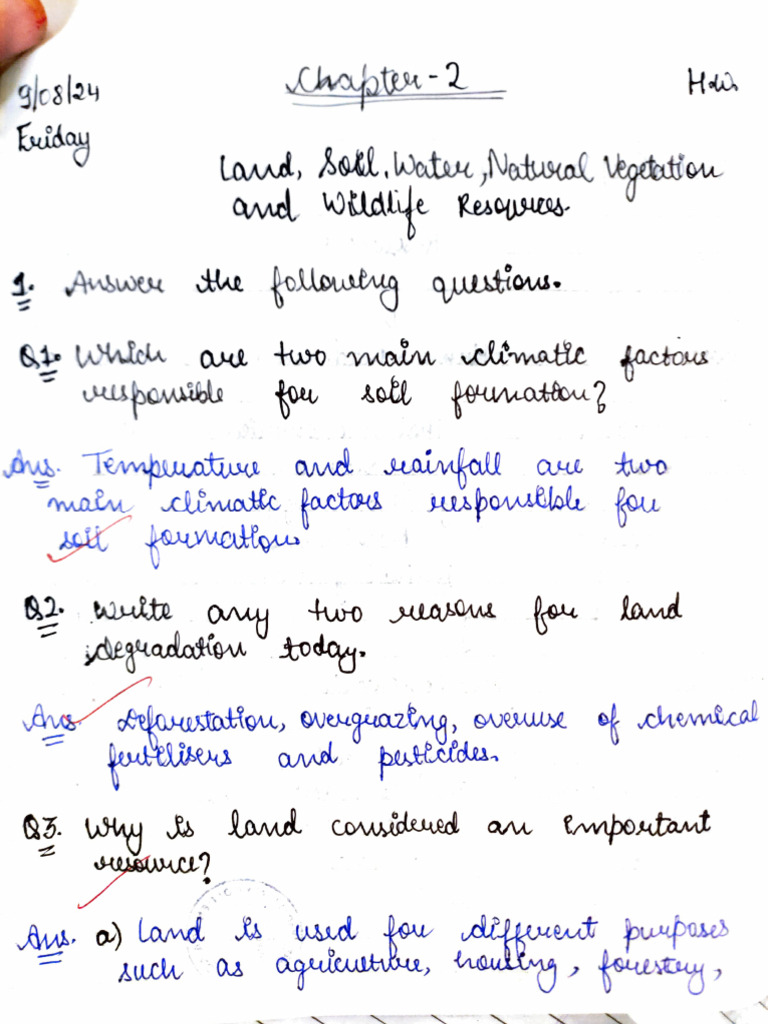 9/08/24
Friday
Chapter-2
H.W.
Land, Soil, Water, Natural Vegetation
and Wildlife Resources.
1. Answer the following questions.
Q1. Which are two main climatic factors
responsible for soil formation?
Ans. Temperature and rainfall are two
main climatic factors responsible for
soil formation.
Q2. Write any two reasons for land
degradation today.
Ans. Deforestation, overgrazing, overuse of chemical
fertilisers and pesticides.
Q3. Why is land considered an important
resource?
Ans. a) Land is used for different purposes
such as agriculture, housing, forestry,